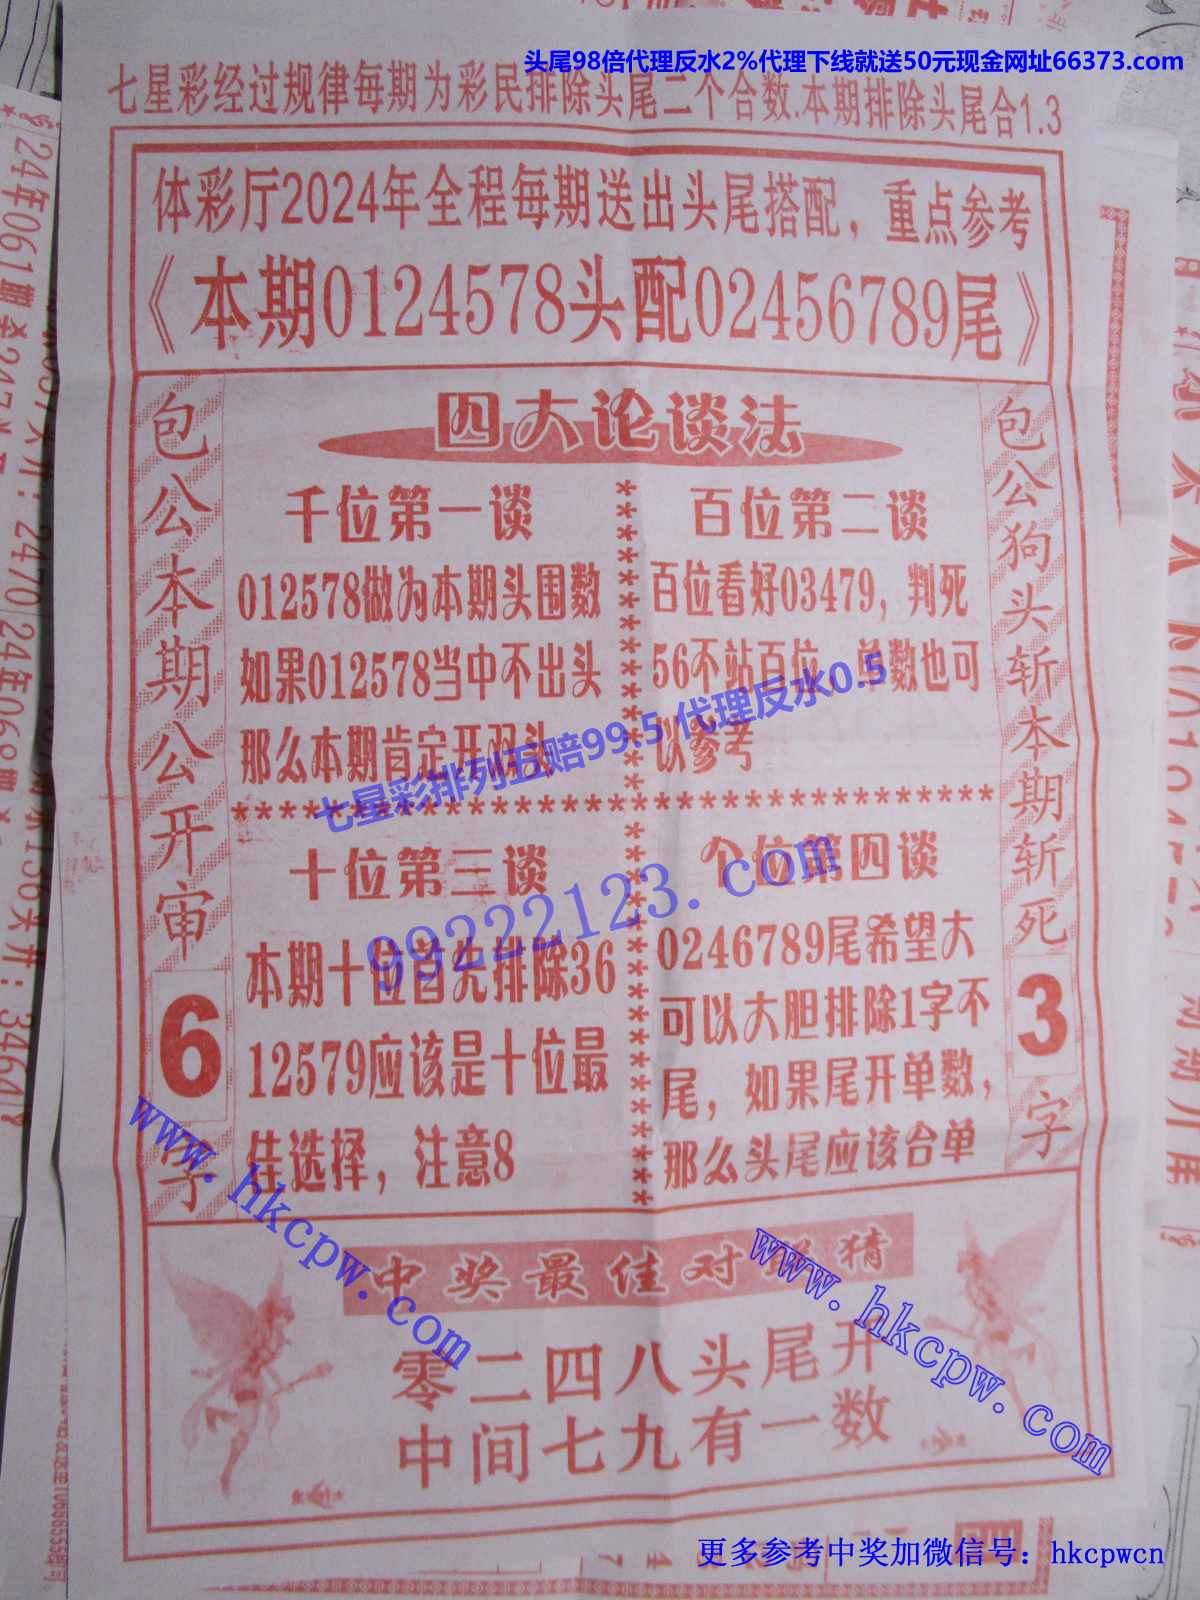 头尾98倍代理反水2%代理下线就送50元现金网址66373.com
七星彩经过规律每期为彩民排除头尾二个合数.本期排除头尾合1.3
体彩厅2024年全程每期送出头尾搭配，重点参考
《本期0124578头配02456789尾》
四大论谈法
包公本期公开审
6
字
千位第一谈
012578做为本期头围数
如果012578当中不出头
那么本期肯定开双头
百位第二谈
百位看好03479，判死
56不站百位，单数也可
以参考
包公狗头斩本期斩死
3
字
七星彩排列五赔99.5 代理反水0.5
99222123.com
十位第三谈
本期十位首先排除36
12579应该是十位最
佳选择，注意8
个位第四谈
0246789尾希望大
可以大胆排除1字不
尾，如果尾开单数，
那么头尾应该合单
www.hkcpw.com
www.hkcpw.com
中奖最佳对联猜
零二四八头尾开
中间七九有一数
更多参考中奖加微信号：hkcpwcn